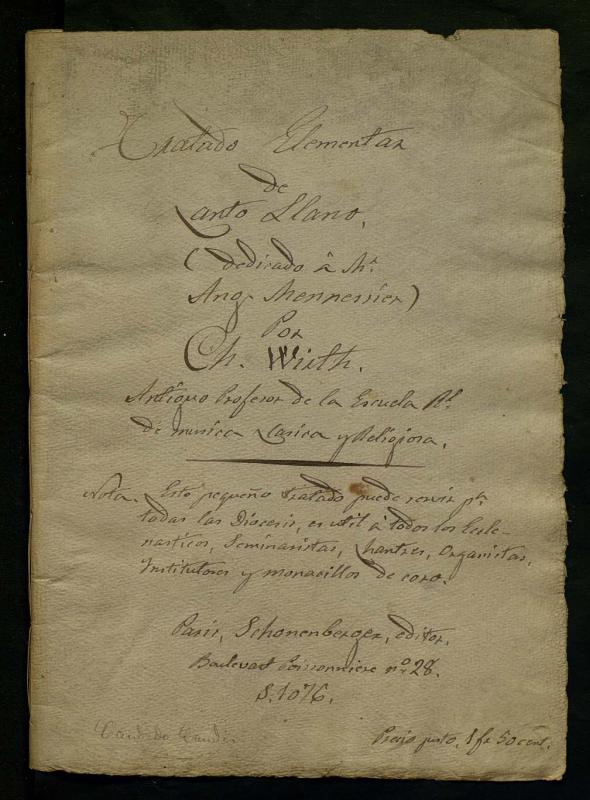 Tratado Elementar
de
Canto Llano,
(dedicado â Mr.
Ang. Mennessier)
Por
Ch. Wirth.
Antiguo Profesor de la Escuela Rl.
de musica Clasica y Religiosa.
Nota. Este pequeño tratado puede servir pa.
todas las Diocesis, es util â todos los Ecle-
siasticos, Seminaristas, Chantres, Organistas,
Institutores y monacillos de coro.
Paris, Schonenberger, editor.
Boulevart Poissonniere no. 28.
S. 1076.
Precio justo, 1 fr 50 cent.